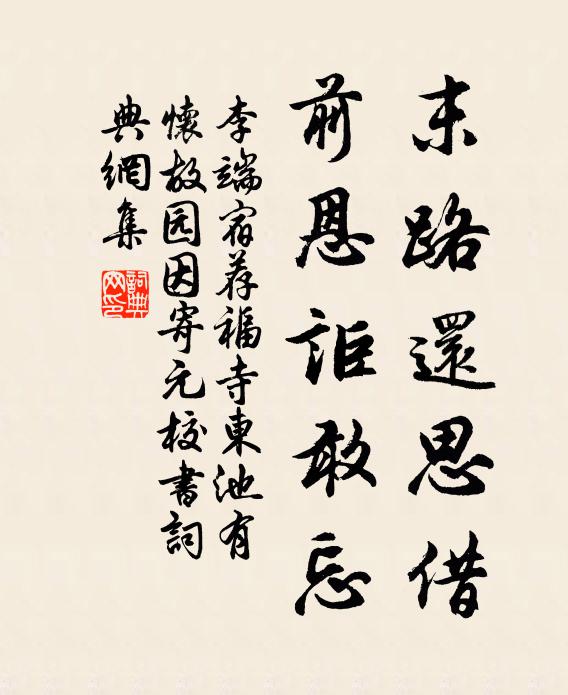 末路還思借
前恩詎敢忘
李端宿荐福寺東池有
懷故园因寄元校書詞
典網集
詞典网印